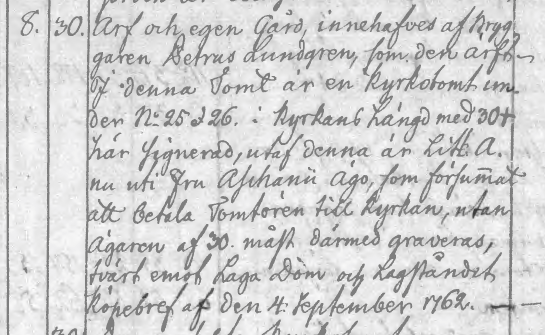 8. 30. Arf och egen Gård, innehafves af Bryg-
garen Petrus Lundgren, som den ärft.
I denna Tomt är en Kyrkotomt un-
der N:o 25 & 26. i Kyrkans Längd med 30
här signerad, utaf denna är Litt. A.
nu uti Fru Aschanii ägo, som försummat
att betala Tomtören till Kyrkan, utan
ägaren af 30. måst därmed graveras,
tvärt emot Laga Dom och Lagståndit
Köpebref af den 4. September 1762.